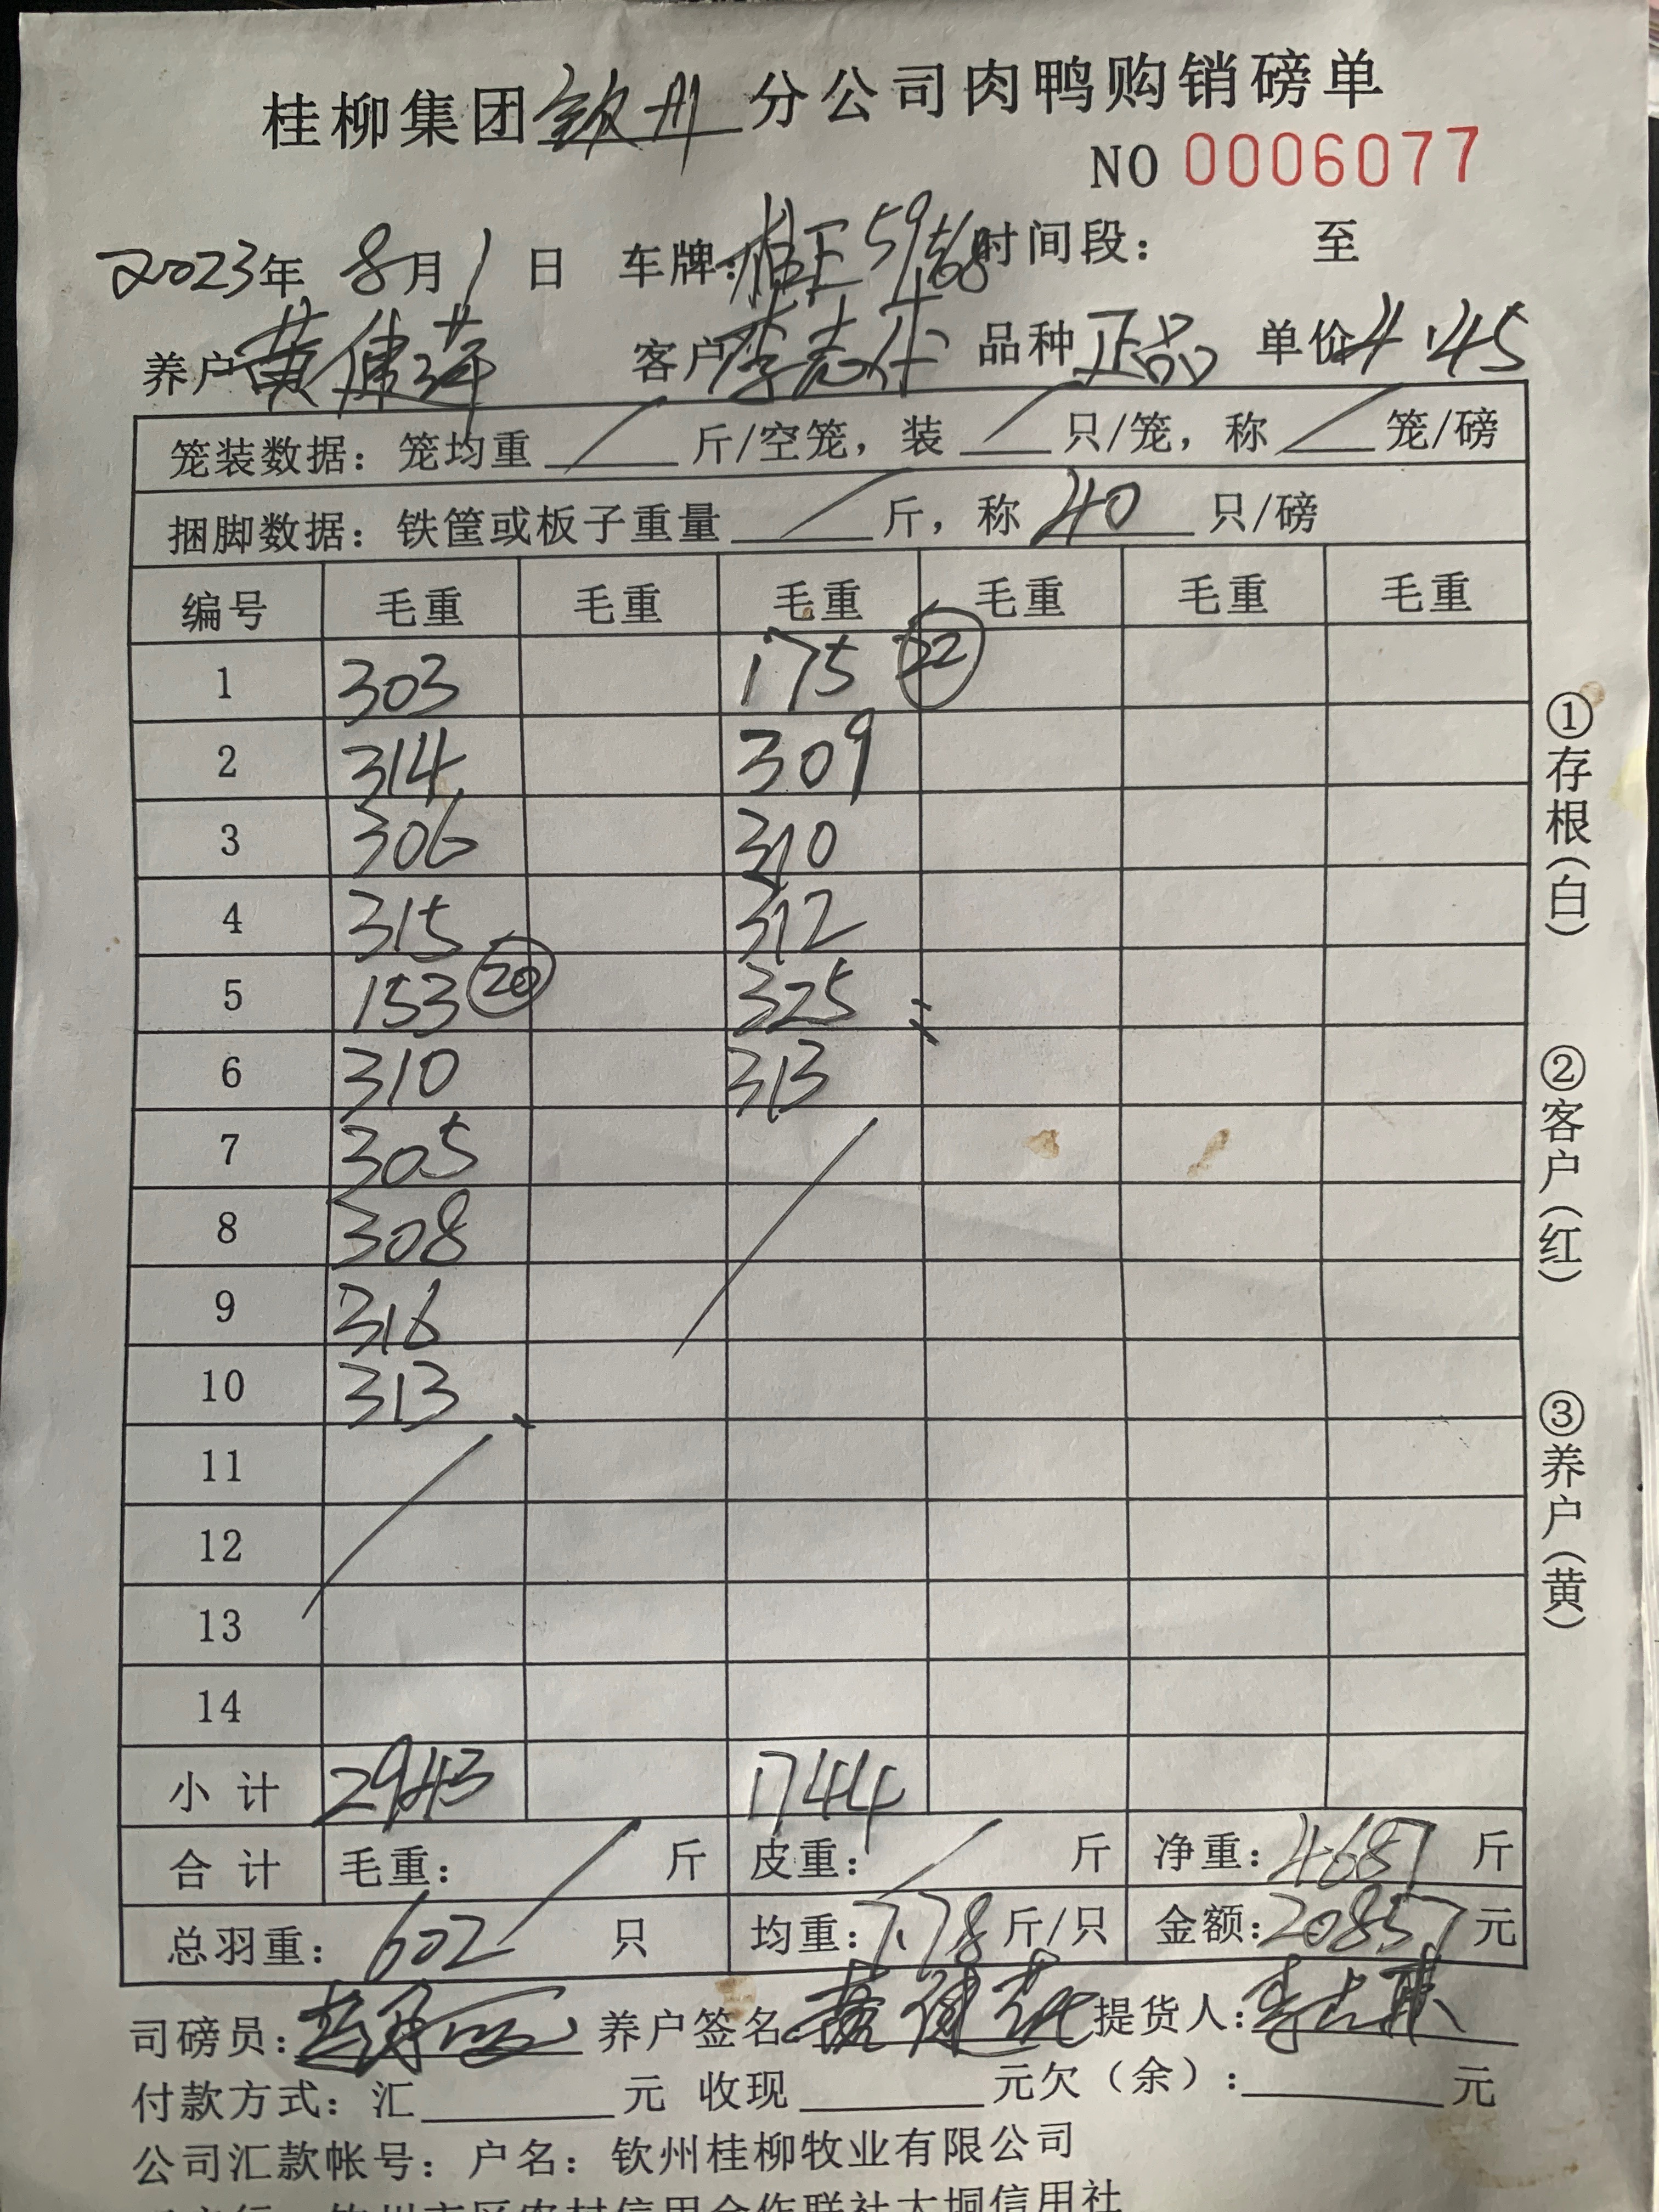 桂柳集团钦州分公司肉鸭购销磅单
NO 0006077
2023年 8月1日 车牌: 桂E 59568 时间段: 至
养户 黄健莲 客户 李志 品种 正品 单价 4.45
笼装数据: 笼均重 / 斤/空笼, 装 / 只/笼, 称 / 笼/磅
捆脚数据: 铁筐或板子重量 / 斤, 称 40 只/磅
编号 毛重 毛重 毛重 毛重 毛重 毛重
1 303 175 22
2 314 309
3 306 310
4 315 312
5 153 20 325
6 310 313
7 305
8 308
9 316
10 313
11
12
13
14
小计 2943 1744
合计 毛重: / 斤 皮重: / 斤 净重: 4687 斤
总羽重: 602 只 均重: 7.78 斤/只 金额: 20857 元
司磅员: 养户签名: 黄健莲 提货人: 李
付款方式: 汇 元 收现 元欠(余): 元
公司汇款帐号: 户名: 钦州桂柳牧业有限公司
钦州市区农村信用合作联社大垌信用社
①存根(白)
②客户(红)
③养户(黄)